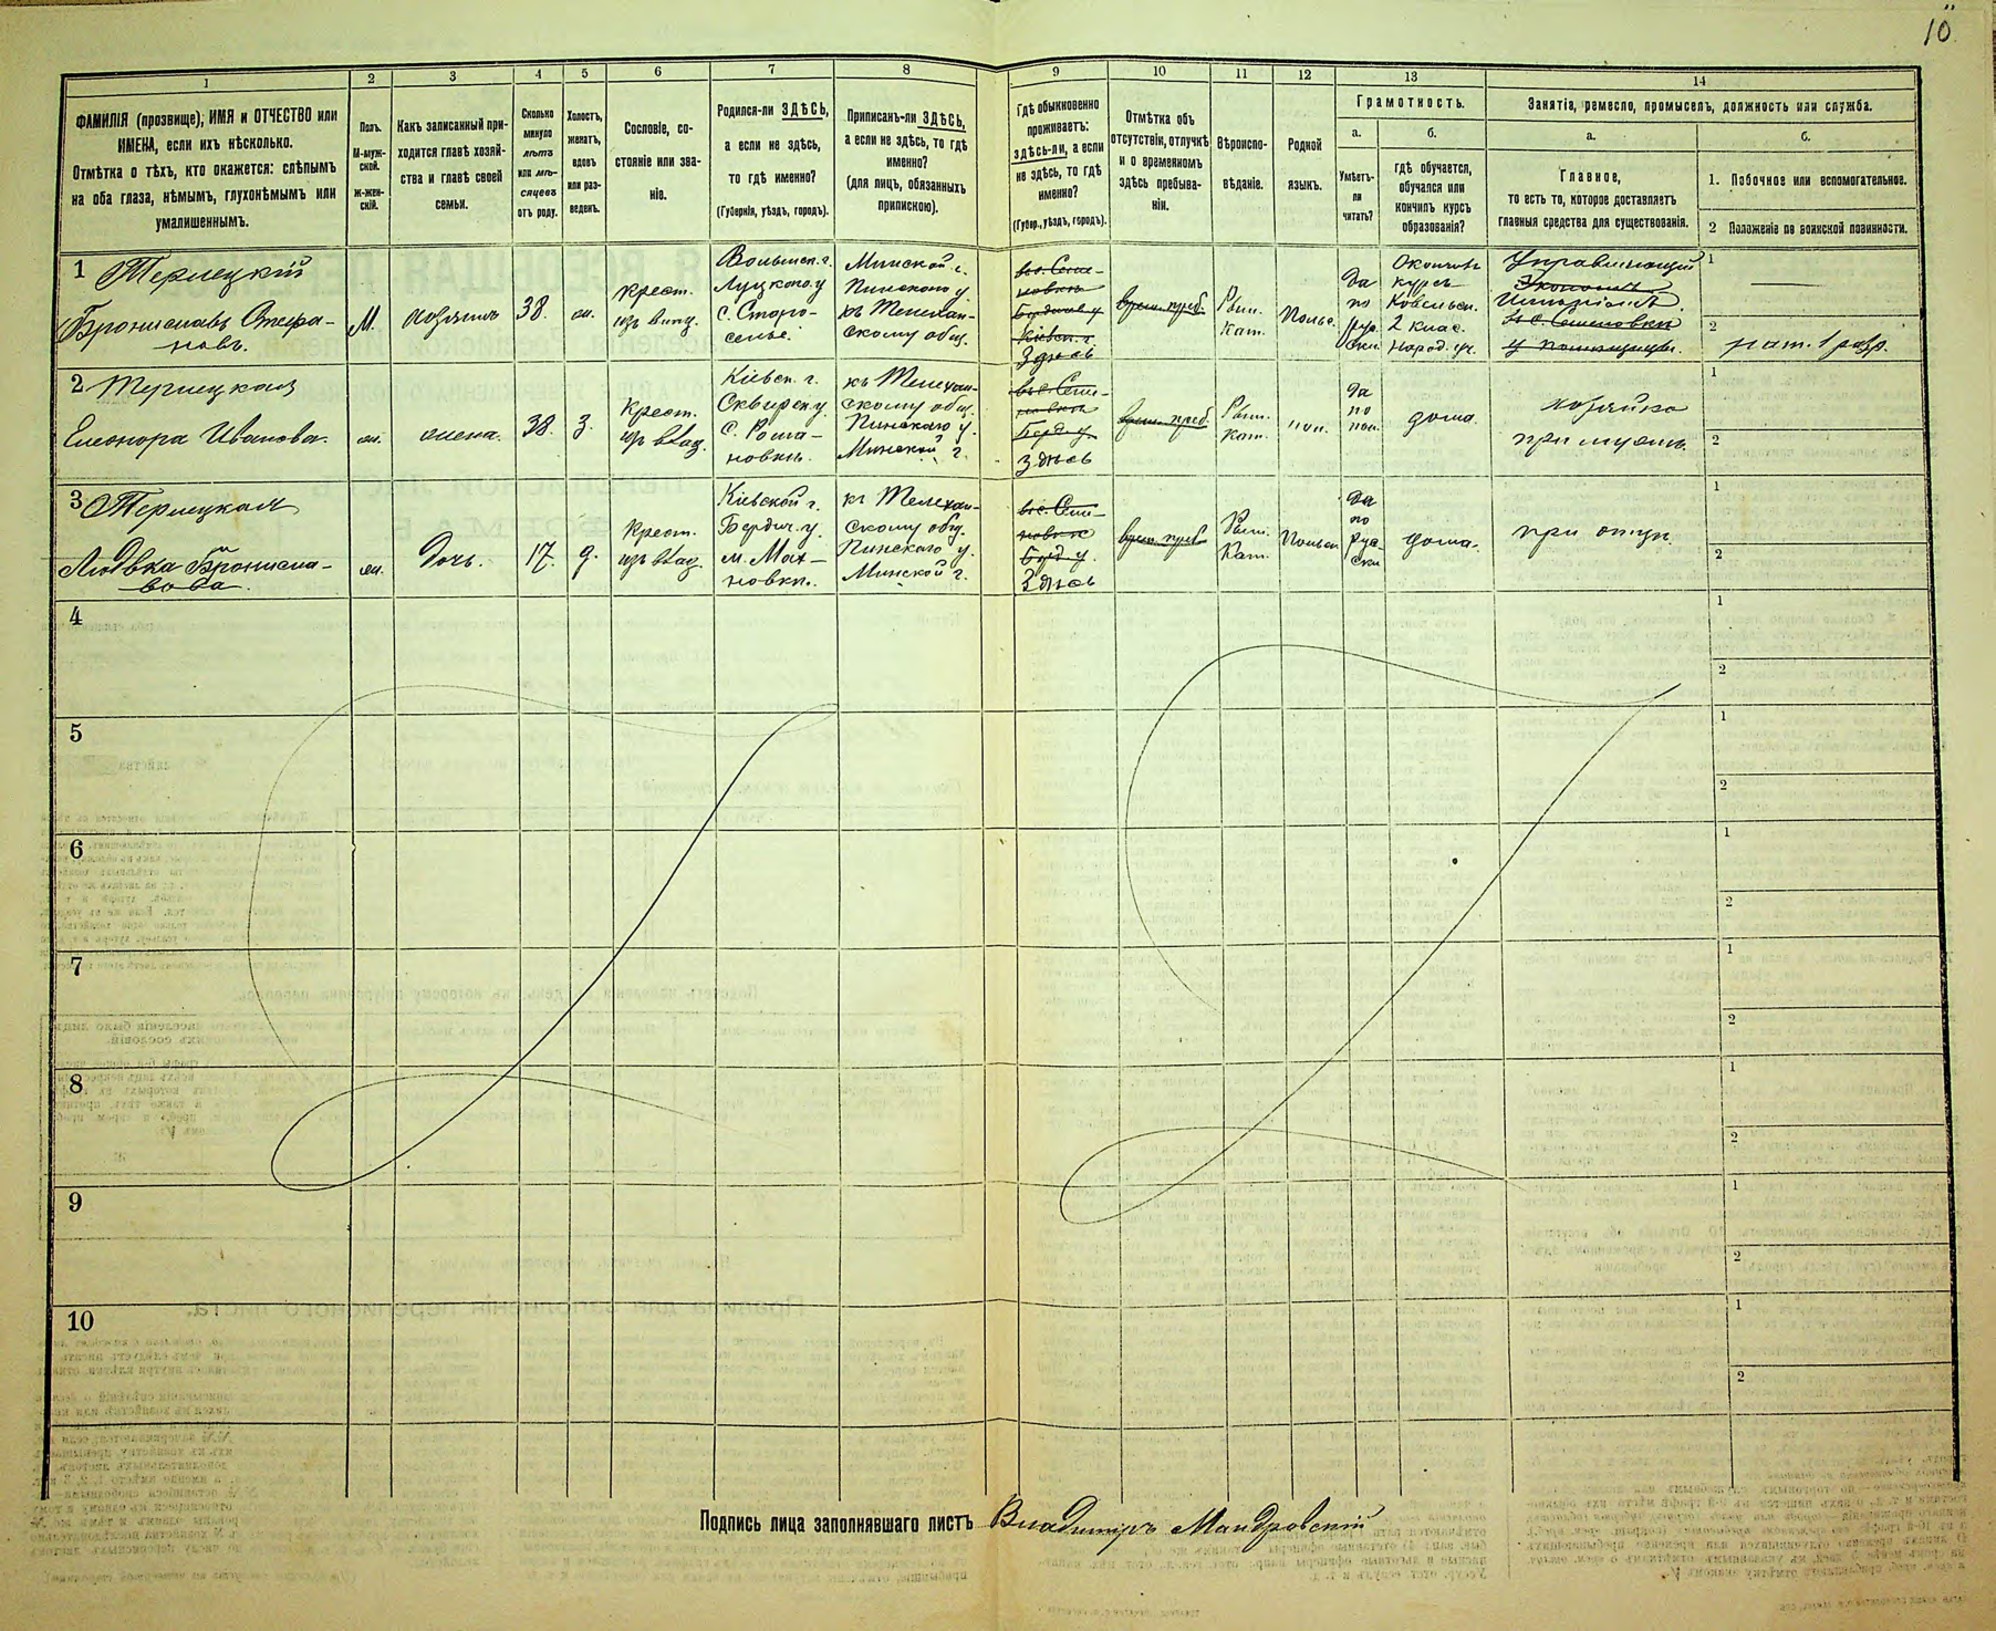 10
1
2
3
4
5
6
7
8
9
10
11
12
13
14
ФАМИЛІЯ (прозвище), ИМЯ и ОТЧЕСТВО или
ИМЕНА, если ихъ нѣсколько.
Отмѣтка о тѣхъ, кто окажется: слѣпымъ
на оба глаза, нѣмымъ, глухонѣмымъ или
умалишеннымъ.
Полъ.
М-муж-
ской.
ж-жен-
скій.
Какъ записанный при-
ходится главѣ хозяй-
ства и главѣ своей
семьи.
Сколько
минуло
лѣтъ
или мѣ-
сяцевъ
отъ роду.
Холостъ,
женатъ,
вдовъ
или раз-
веденъ.
Сословіе, со-
стояніе или зва-
ніе.
Родился-ли ЗДѢСЬ,
а если не здѣсь,
то гдѣ именно?
(Губернія, уѣздъ, городъ).
Приписанъ-ли ЗДѢСЬ,
а если не здѣсь, то гдѣ
именно?
(для лицъ, обязанныхъ
припискою).
Гдѣ обыкновенно
проживаетъ:
здѣсь-ли, а если
не здѣсь, то гдѣ
именно?
(Губер., уѣздъ, городъ).
Отмѣтка объ
отсутствіи, отлучкѣ
и о временномъ
здѣсь пребыва-
ніи.
Вѣроиспо-
вѣданіе.
Родной
языкъ.
Грамотность.
а.
Умѣетъ-
ли
читать?
б.
гдѣ обучается,
обучался или
кончилъ курсъ
образованія?
Занятіе, ремесло, промыселъ, должность или служба.
а.
Главное,
то есть то, которое доставляетъ
главныя средства для существованія.
б.
1. Побочное или вспомогательное.
2 Положеніе по воинской повинности.
1 Терлецкій
Брониславъ Стефа-
новъ.
М.
хозяинъ
38.
ж.
крест.
изъ
Волынск. г.
Луцкаго у
с. Старо-
селье.
Минской г.
Пинскаго у.
къ Телехан-
скому общ.
въ с. Семе-
новкѣ
Бердичев. у
Кіевск. г.
Здѣсь
врем. преб.
Рим.
Кат.
Польс.
Да
по
рус
ски
Окончилъ
курсъ
Ковельск.
2 клас.
народ. уч.
Управляющій
имѣніемъ
въ с. Семеновкѣ
у помѣщицы.
1
2
рат. 1 разр.
2 Терлецкая
Елеонора Иванова.
ж.
жена.
38.
З.
Крест.
изъ
Кіевск. г.
Сквирск. у.
с. Рома-
новкѣ.
къ Телехан-
скому общ.
Пинскаго у.
Минской г.
въ с. Семе-
новкѣ
Берд. у.
Здѣсь
врем. преб.
Рим.
Кат.
пол.
Да
по
пол.
дома.
хозяйка
при мужѣ.
1
2
3 Терлецкая
Людвка Бронисла-
вова.
ж.
Дочь.
17.
д.
Крест.
изъ
Кіевской г.
Бердич. у.
м. Мах-
новкѣ.
къ Телехан-
скому общ.
Пинскаго у.
Минской г.
въ с. Семе-
новкѣ
Берд. у.
Здѣсь
врем. преб
Рим.
Кат.
Польск
Да
по
рус-
ски
дома.
при отцѣ.
1
2
4
1
2
5
1
2
6
1
2
7
1
2
8
1
2
9
1
2
10
1
2
Подпись лица заполнявшаго листъ Владиміръ Мандровскій